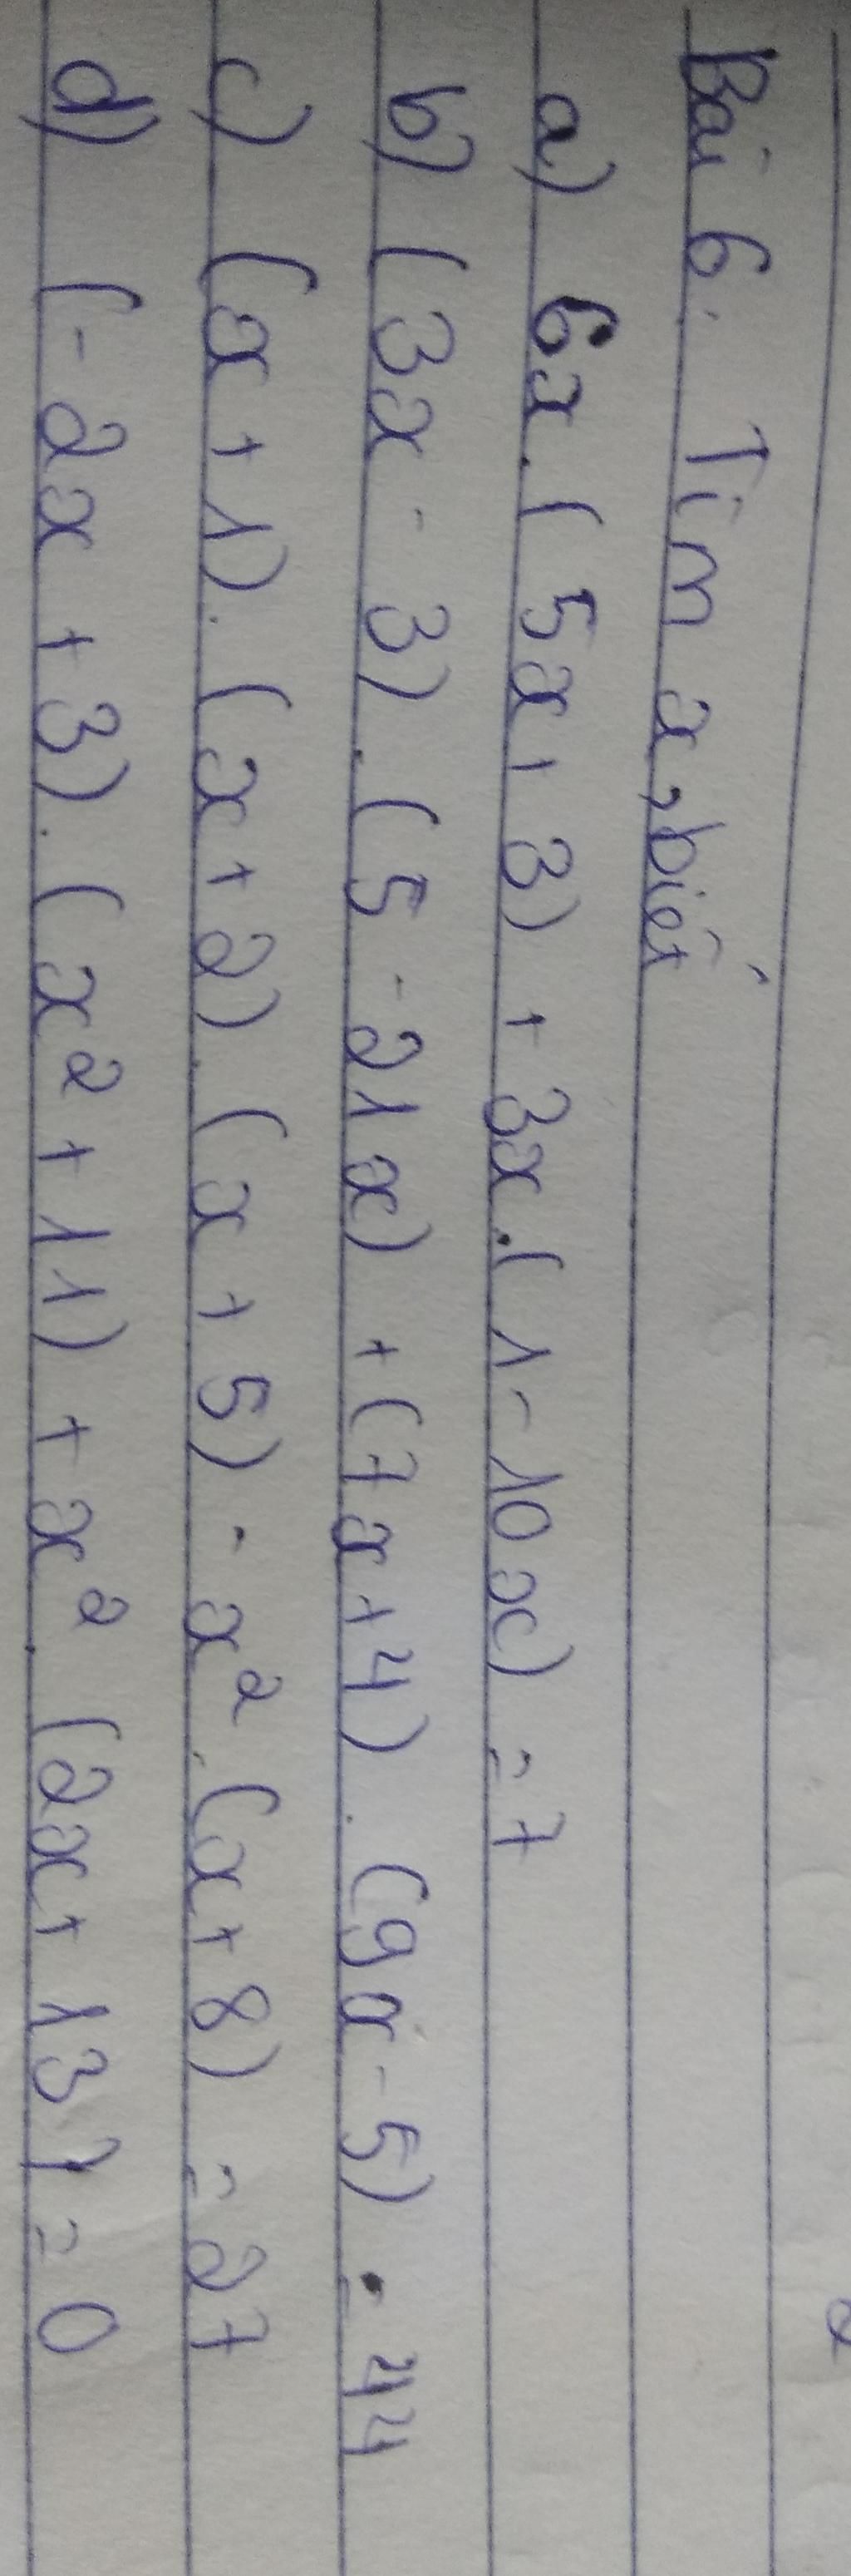 Bài 6. Tìm x, biết
a) 6x.(5x+3) + 3x.(1-10x) = 7
b) (3x - 3).(5 - 21x) + (7x+4).(9x-5) = 44
c) (x+1).(x+2).(x+5) - x².(x+8) = 27
d) (-2x+3).(x²+11) + x².(2x+13) = 0